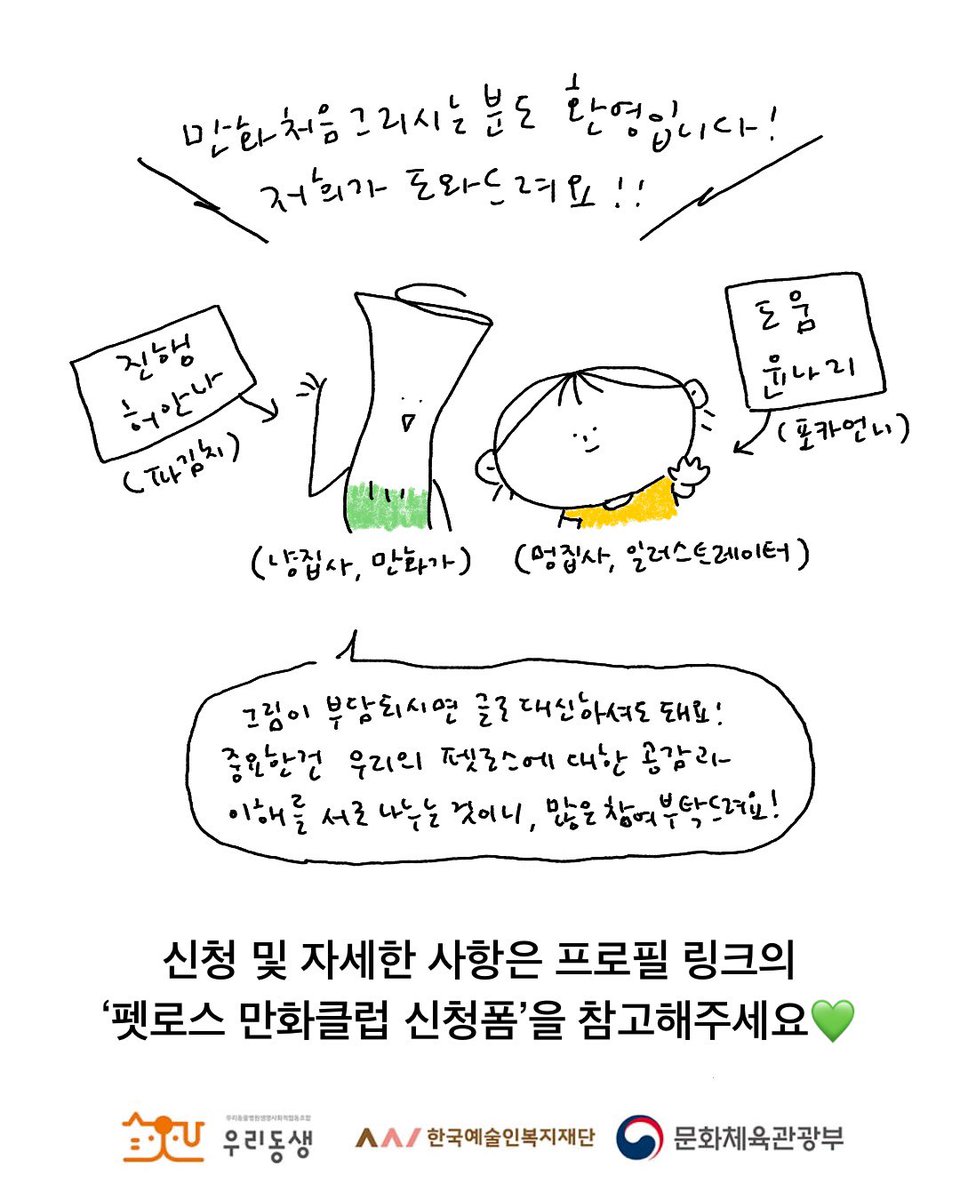 만화 처음 그리시는 분도 환영입니다!
저희가 도와드려요!!
진행
허안나
(파김치)
도움
윤나리
(포카언니)
(냥집사, 만화가)
(멍집사, 일러스트레이터)
그림이 부담되시면 글로 대신하셔도 돼요!
중요한건 우리의 펫로스에 대한 공감과
이해를 서로 나누는 것이니, 많은 참여 부탁드려요!
신청 및 자세한 사항은 프로필 링크의
‘펫로스 만화클럽 신청폼’을 참고해주세요💚
우리동물병원생명사회적협동조합
우리동생
한국예술인복지재단
문화체육관광부